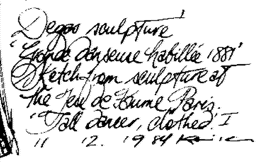 Degas sculpture
"Grande danseuse habillée 1881"
Sketch from sculpture at
the Jeu de Paume Paris.
"Tall dancer, clothed" I
11 12. 1984